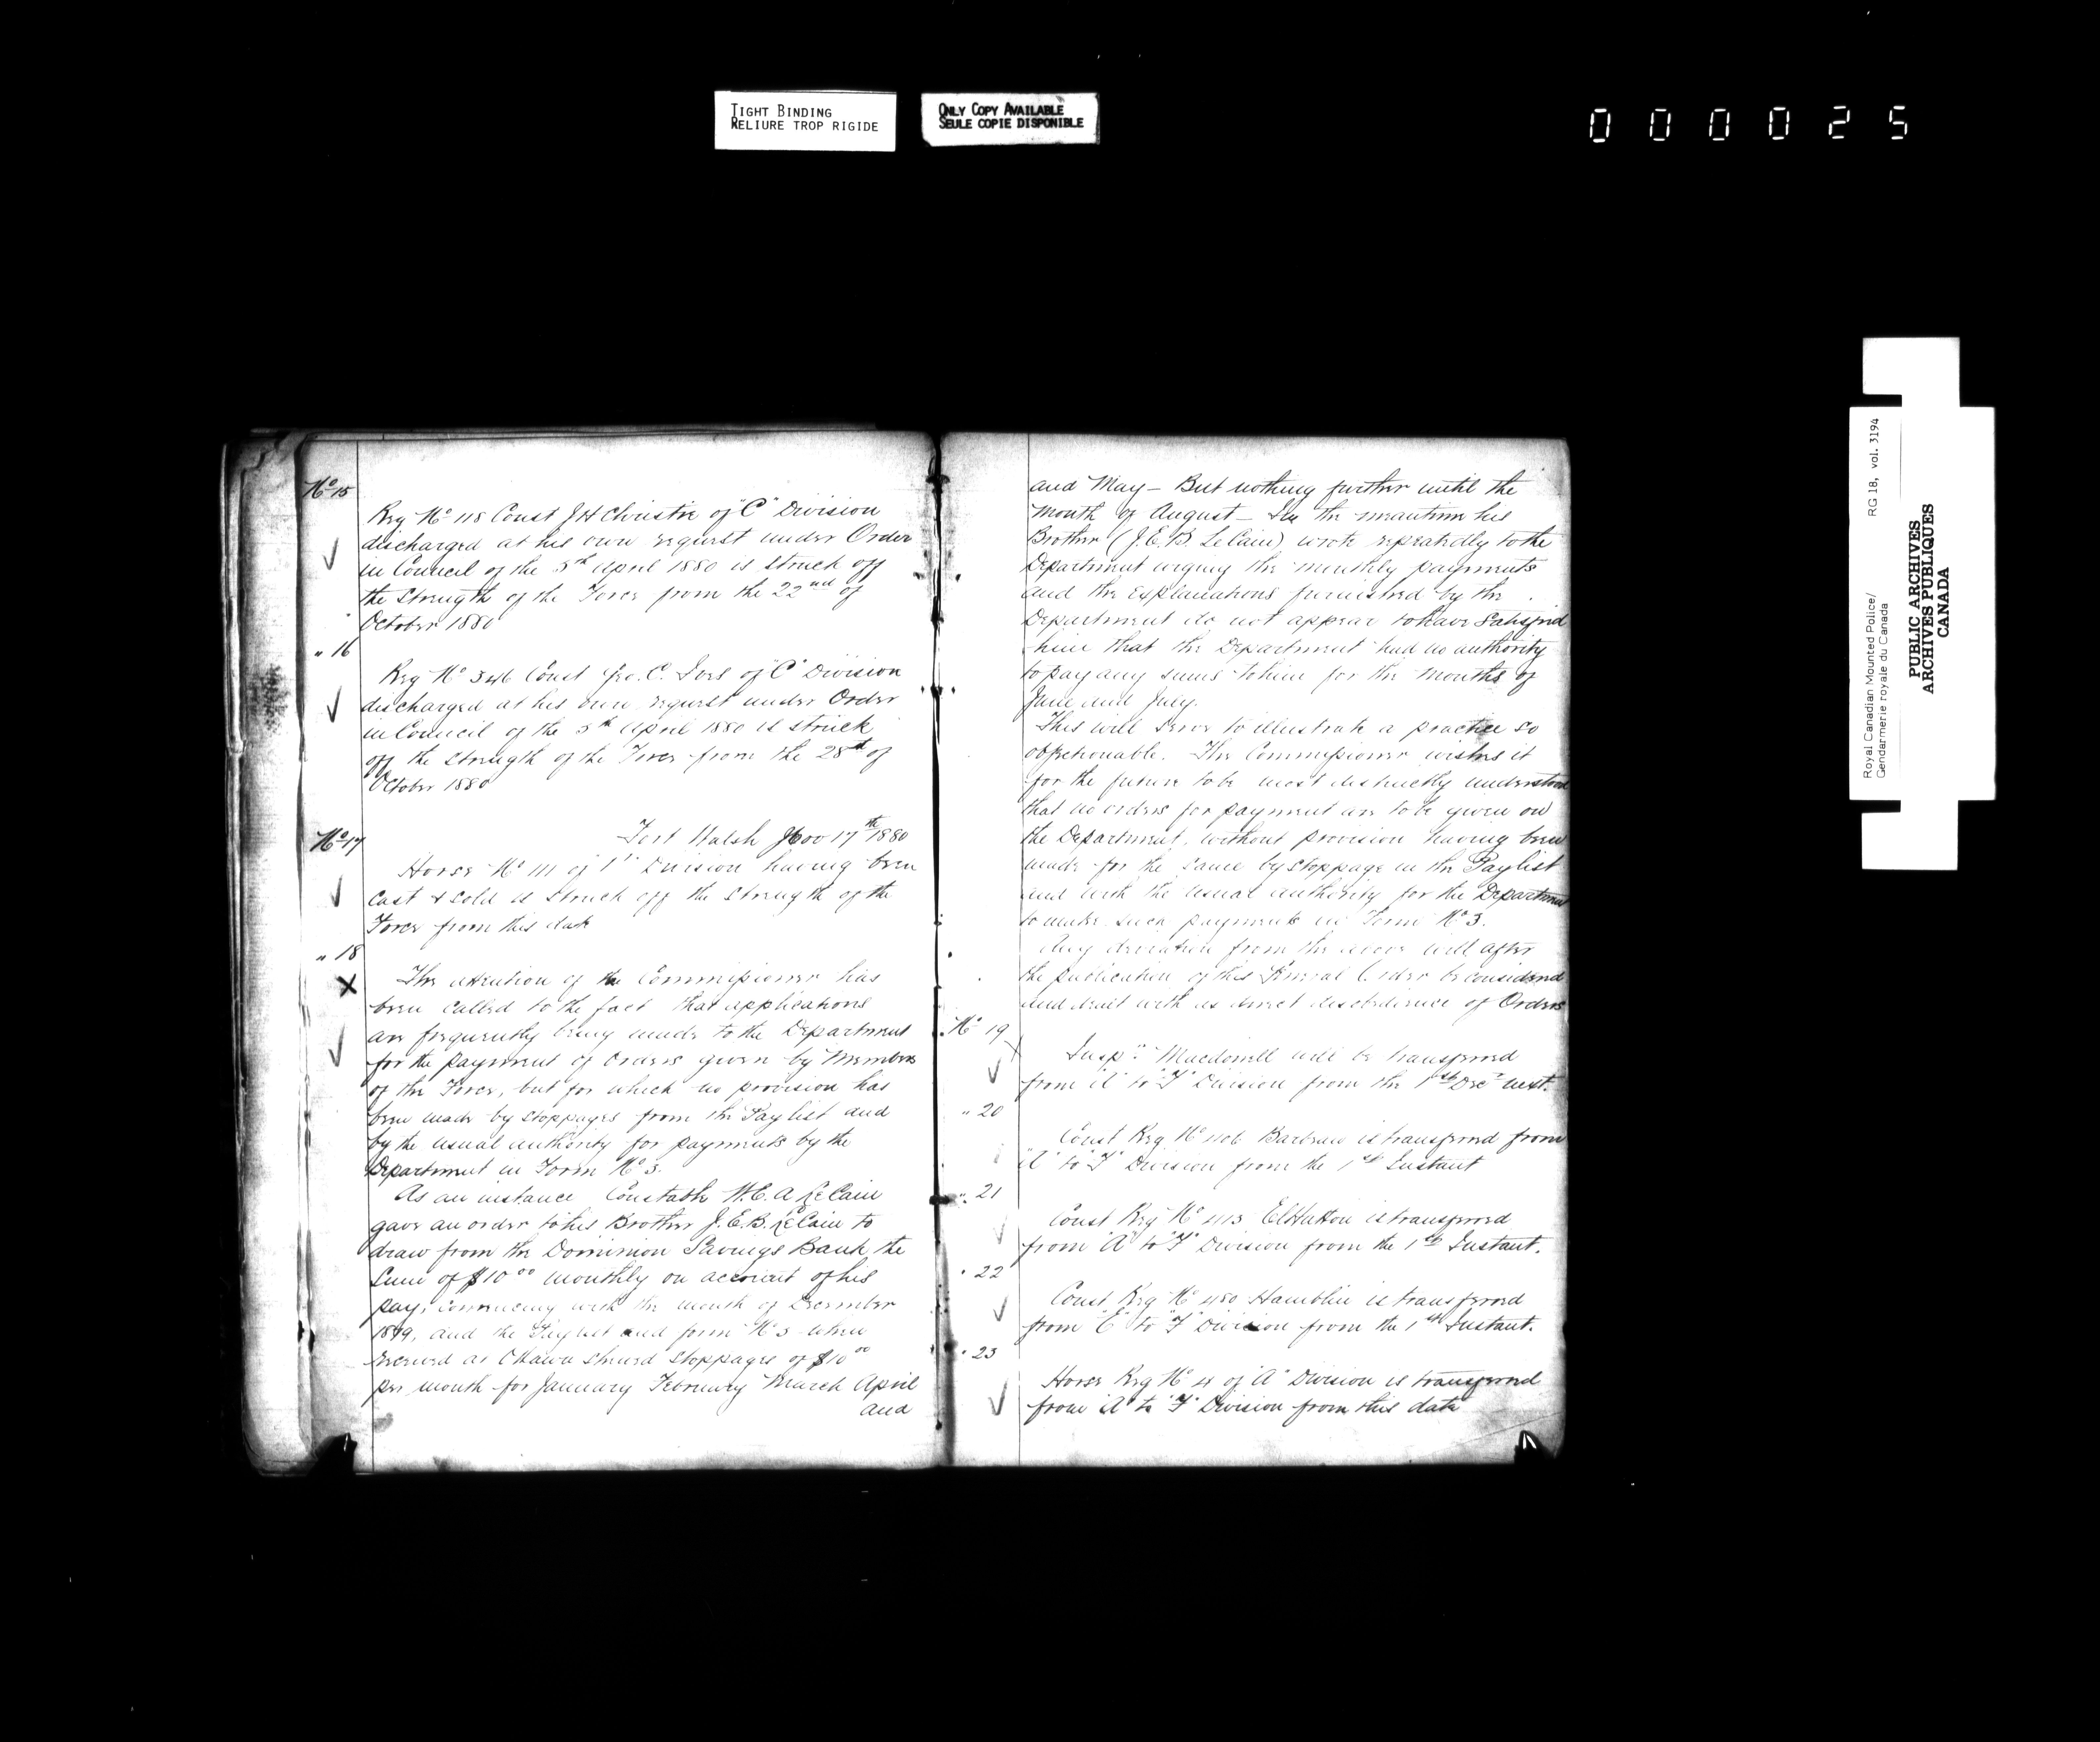 TIGHT BINDING
RELIURE TROP RIGIDE
ONLY COPY AVAILABLE
SEULE COPIE DISPONIBLE
000025
No 15
Reg No 118 Const J H Christie of "C" Division
discharged at his own request under Order
in Council of the 5th April 1880 is struck off
the strength of the Force from the 22nd of
October 1880
" 16
Reg No 346 Const Geo. C. Ives of "C" Division
discharged at his own request under Order
in Council of the 5th April 1880 is struck
off the strength of the Force from the 28th of
October 1880
No 17
Fort Walsh Nov 17th 1880
Horse No 111 of Division having been
cast & sold is struck off the strength of the
Force from this date
" 18
The attention of the Commissioner has
been called to the fact that applications
are frequently being made to the Department
for the payment of orders given by Members
of the Force, but for which no provision has
been made by stoppages from the Pay list and
by the usual authority for payments by the
Department in Form No 3.
As an instance Constable A. LeCain
gave an order to his Brother J. E. B. LeCain to
draw from the Dominion Savings Bank the
Sum of $10 00 monthly on account of his
pay, commencing with the month of December
1879, and the Paylist and form No 3 when
received at Ottawa showed stoppages of $10 00
per month for January February March April
and
and May – But nothing further until the
month of August – In the meantime his
Brother (J. E. B. LeCain) wrote repeatedly to the
Department urging the monthly payments
and the explanations furnished by the
Department do not appear to have satisfied
him that the Department had no authority
to pay any sums to him for the months of
June and July.
This will serve to illustrate a practice so
objectionable. The Commissioner wishes it
for the future to be most distinctly understood
that no orders for payment are to be given on
the Department, without provision having been
made for the same by stoppage in the Paylist
and with the usual authority for the Department
to make such payments in Form No 3.
Any deviation from the above will after
the publication of this General Order be considered
and dealt with as direct disobedience of Orders
No 19
Inspr. Macdonell will be transferred
from "A" to "F" Division from the 1st Decr next.
" 20
Const Reg No 406 is transferred from
"A" to "F" Division from the 1st Instant
" 21
Const Reg No 413 Hatton is transferred
from "A" to "F" Division from the 1st Instant.
" 22
Const Reg No 480 Hamblin is transferred
from "E" to "F" Division from the 1st Instant.
" 23
Horse Reg No 4 of "A" Division is transferred
from "A" to "F" Division from this date
Royal Canadian Mounted Police/
Gendarmerie royale du Canada
RG 18, vol. 3194
PUBLIC ARCHIVES
ARCHIVES PUBLIQUES
CANADA